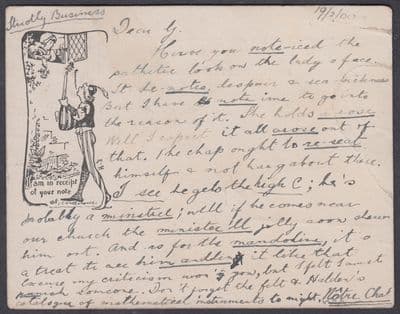 Strictly Business
19/3/00
Dear G.
Have you note-iced the
pathetic look on the lady's face.
It de-notes, despair & sea-sickness
But I have no note ime to go into
the reason of it. She holds a rose
Well I expect it all arose out of
that. The chap ought to re-seat
himself & not hang about there.
I see he gets the high C; he's
probably a minstrel; well if he comes near
our church the minister'll jolly soon clear
him out. And as for the mandoline, it's
a treat to see him andle it like that
Excuse my criticism won't you, but I felt I must
someone. Don't forget the felt &
catalogue of mathematical instruments to might,
I am in receipt
of your note